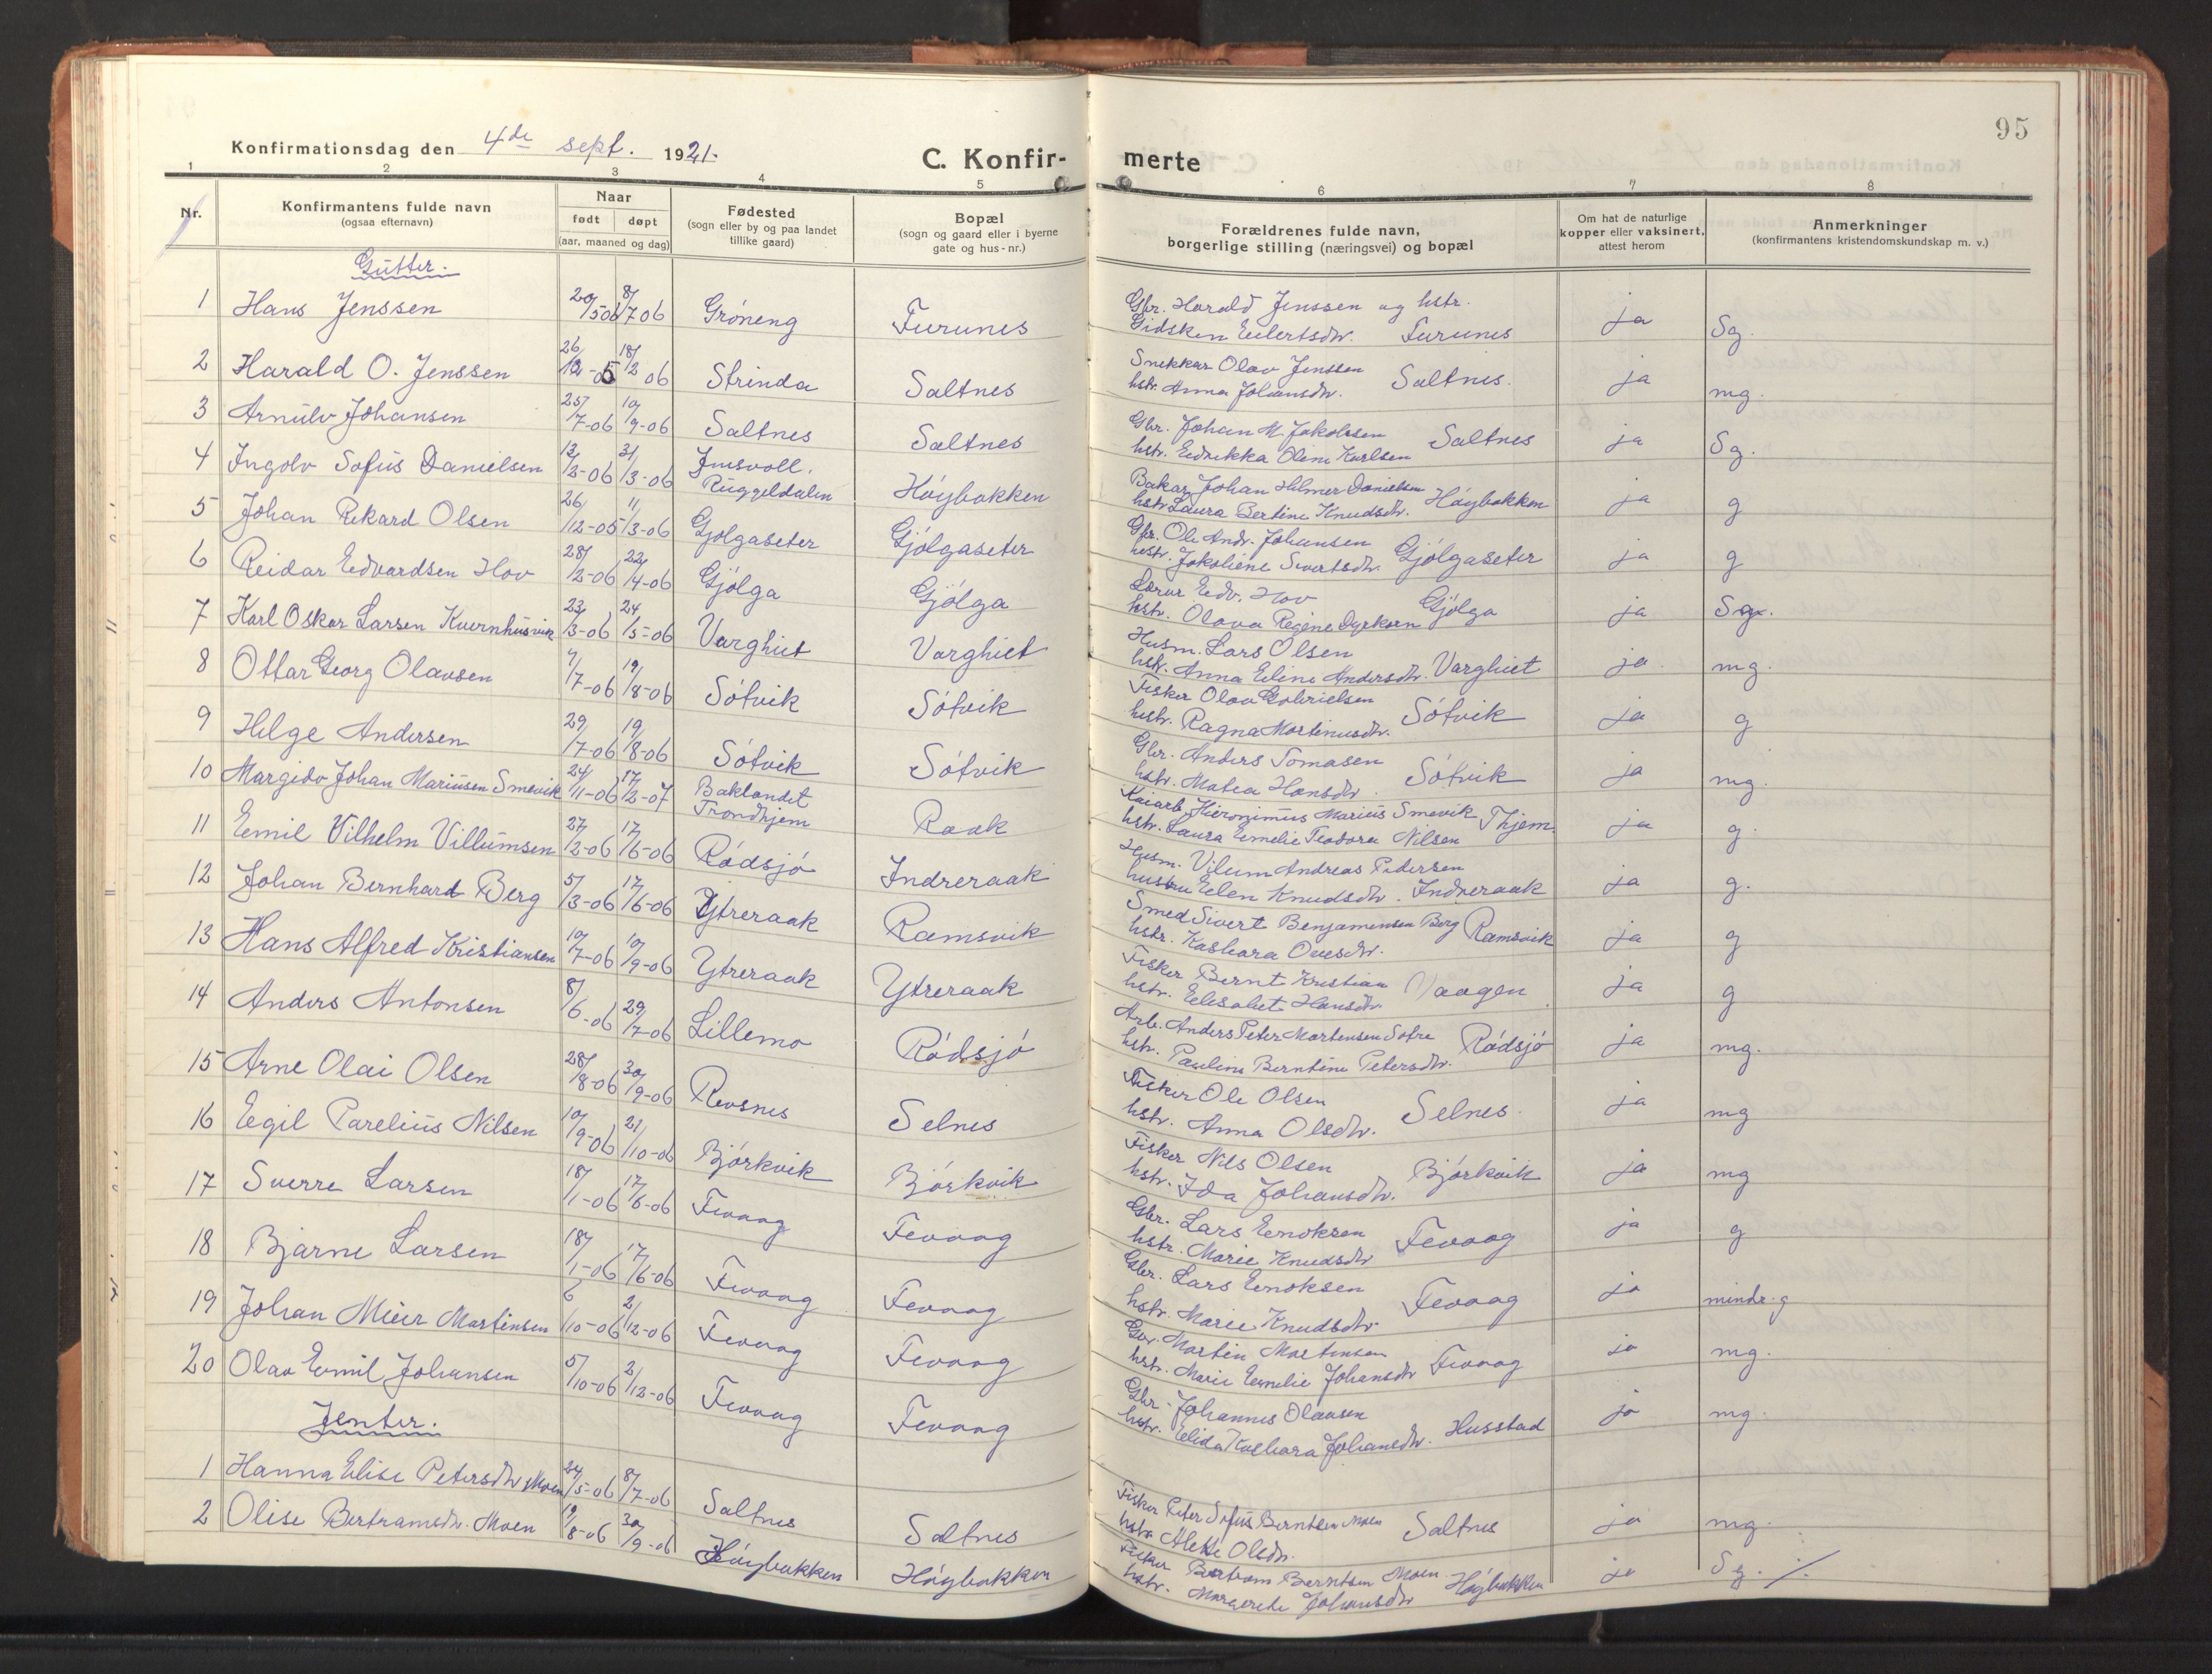 95
Konfirmationsdag den 4de sept. 1921.
C. Konfir-
merte
1 2 3 4 5 6 7 8
Nr.
Konfirmantens fulde navn
(ogsaa efternavn)
Naar
født døpt
(aar, maaned og dag)
Fødested
(sogn eller by og paa landet
tillike gaard)
Bopæl
(sogn og gaard eller i byerne
gate og hus-nr.)
Forældrenes fulde navn,
borgerlige stilling (næringsvei) og bopæl
Om hat de naturlige
kopper eller vaksinert,
attest herom
Anmerkninger
(konfirmantens kristendomskundskap m. v.)
Gutter.
1 Hans Jenssen 20/5 06 8/7 06 Grøneng Furunes Gbr. Harald Jenssen og hstr.
Gidsken Eilertsdtr. Furunes ja Sg.
2 Harald O. Jenssen 26/12-05 18/2 06 Strinda Saltnes Snekkar Olav Jenssen
hstr. Anna Johansdtr. Saltnes. ja mg.
3 Arnulv Johansen 25/7-06 10/9-06 Saltnes Saltnes Gbr. Johan M. Jakobsen
hstr. Edrikka Oline Karlsen Saltnes ja Sg.
4 Ingolv Sofus Danielsen 13/2-06 31/3-06
Ruggeldalen Høybakken Bakar Johan Hilmer Danielsen
hstr. Laura Bertine Knudsdtr. Høybakken ja g
5 Johan Rikard Olsen 26/12-05 11/3-06 Gjølgaseter Gjølgaseter Gbr. Ole Andr. Johansen
hstr. Jakobine Sivertsdtr. Gjølgaseter ja g
6 Reidar Edvardsen Hov 28/2-06 22/4-06 Gjølga Gjølga Lærar Edv. Hov
hstr. Olava Regine Dyrkorn Gjølga ja Sg.
7 Karl Oskar Larsen Kvernhusvik 23/3-06 24/5-06 Varghiet Varghiet Husm. Lars Olsen
hstr. Anna Eline Andersdtr. Varghiet ja mg.
8 Ottar Georg Olavsen 7/7-06 19/8-06 Søtvik Søtvik Fisker Olav Gabrielsen
hstr. Ragna Martinusdtr. Søtvik ja g
9 Helge Andersen 29/7-06 19/8-06 Søtvik Søtvik Gbr. Anders Tomasen
hstr. Matea Hansdtr. Søtvik ja mg.
10 Margido Johan Mariusen Smevik 24/11-06 17/2-07 Baklandet
Trondhjem Raak Kaiarb. Hieronimus Marius Smevik
hstr. Laura Emelie Teodora Nilsen Thjem ja g.
11 Emil Vilhelm Villumsen 27/2-06 17/6-06 Rødsjø Indreraak Husm. Vilum Andreas Pedersen
hustru Elen Knudsdtr. Indreraak ja g.
12 Johan Bernhard Berg 5/3-06 17/6-06 Ytreraak Ramsvik Smed Sivert Benjaminsen Berg
hstr. Kasbara Ovesdtr. Ramsvik ja g
13 Hans Alfred Kristiansen 10/7-06 10/9-06 Ytreraak Ytreraak Fisker Bernt Kristian
hstr. Elisabet Hansdtr. Vaagen ja g
14 Anders Antonsen 8/6-06 29/7-06 Lillemo Rødsjø Arb. Anders Peter Mortensen
hstr. Pauline Berntine Petersdtr. Rødsjø ja mg.
15 Arne Olai Olsen 28/8-06 30/9-06 Revsnes Selnes Fisker Ole Olsen
hstr. Anna Olsdtr. Selnes. ja mg
16 Egil Parelius Nilsen 10/9-06 21/10-06 Bjørkvik Bjørkvik Fisker Nils Olsen
hstr. Ida Johansdtr. Bjørkvik ja mg
17 Sverre Larsen 18/1-06 17/6-06 Fevaag Fevaag Gbr. Lars Enoksen
hstr. Marie Knudsdtr Fevaag ja g
18 Bjarne Larsen 18/1-06 17/6-06 Fevaag Fevaag Gbr. Lars Enoksen
hstr. Marie Knudsdtr Fevaag ja mindr. g
19 Johan Meier Martinsen 6/10-06 2/12-06 Fevaag Fevaag Gbr. Martin Martinsen
hstr. Marie Emelie Johansdtr Fevaag ja mg.
20 Olav Emil Johansen 5/10-06 2/12-06 Fevaag Fevaag Gbr. Johannes Olausen
hstr. Elida Kasbara Johansdtr. Husstad ja mg.
Jenter.
1 Hanna Elise Petersdtr Moen 24/5-06 8/7-06 Saltnes Saltnes Fisker Peter Sofus Berntsen Moen
hstr Olsdtr. Saltnes ja mg.
2 Olise Bertramsdtr. Moen 19/8-06 30/9-06 Høybakken Høybakken Fisker Bertram Berntsen Moen
hstr. Margrete Johansdtr Høybakken ja Sg. ./.